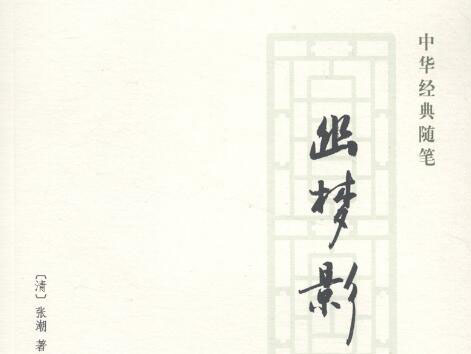 中华经典随笔
幽梦影
〔清〕张潮 著